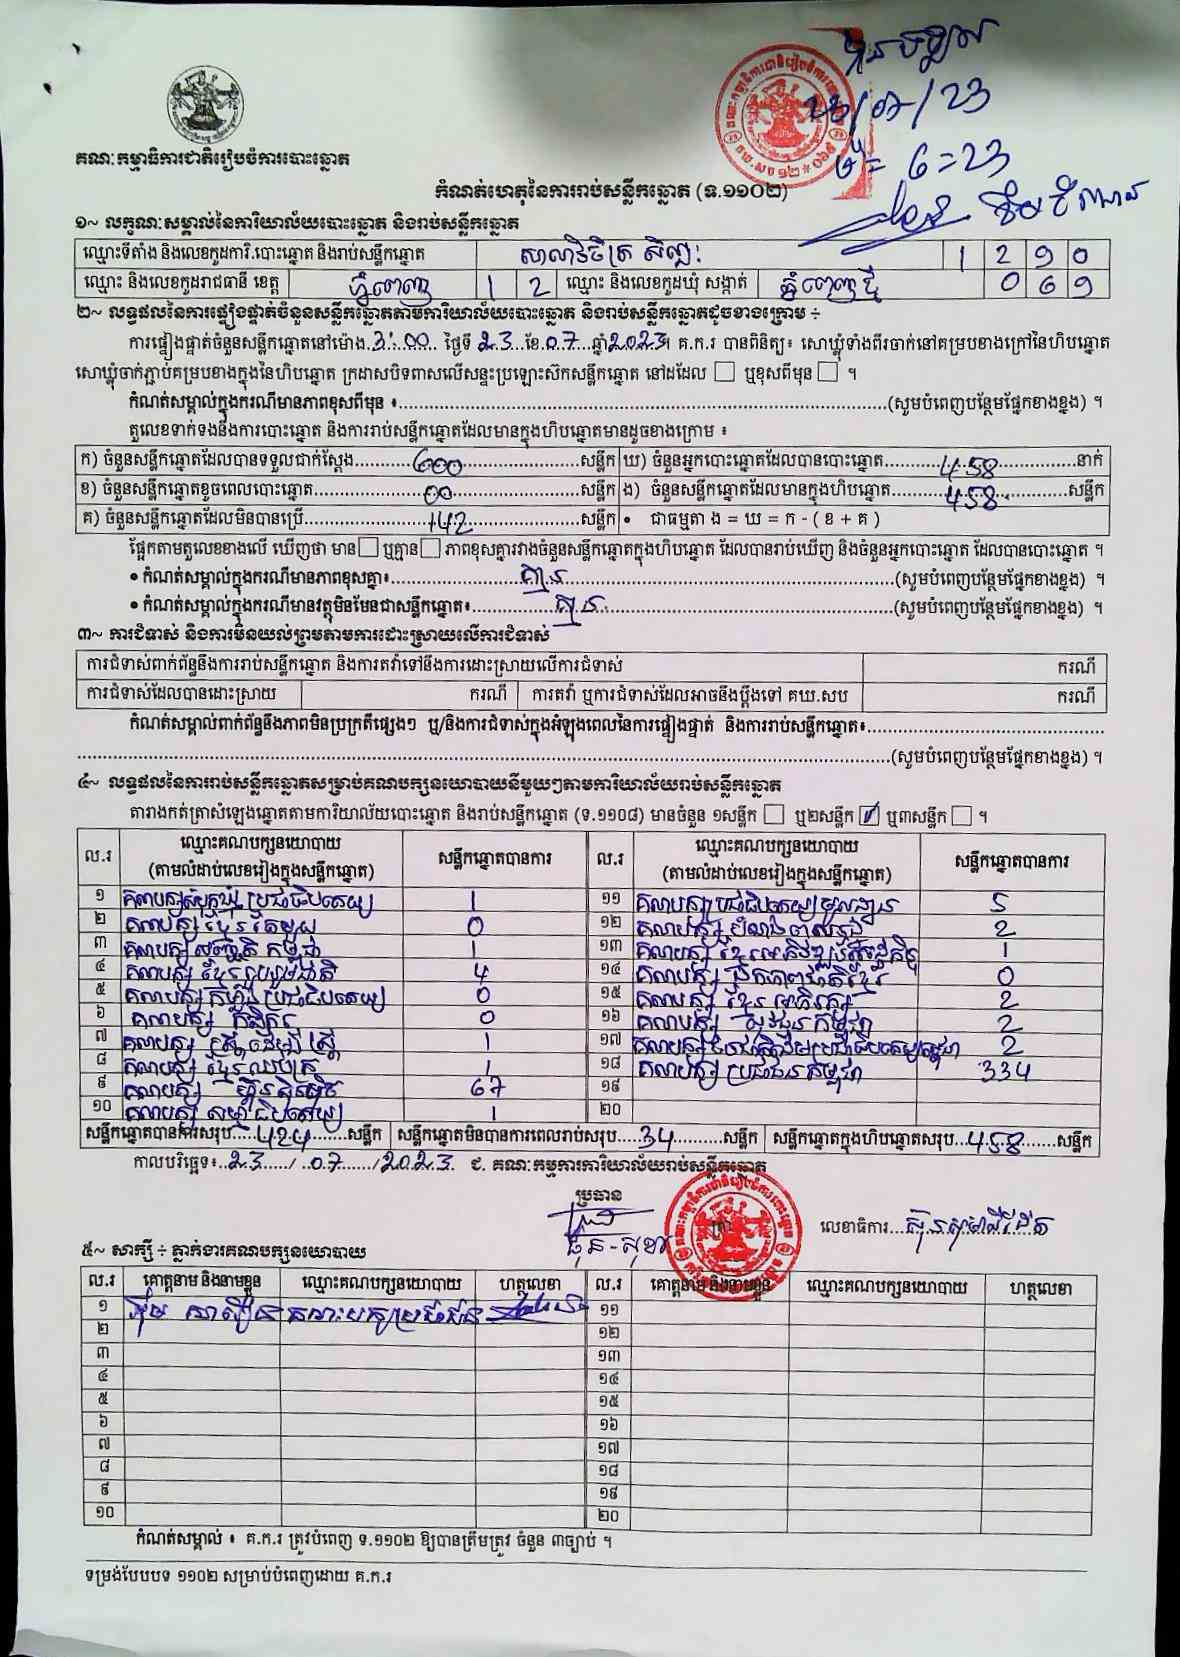 គណៈកម្មាធិការជាតិរៀបចំការបោះឆ្នោត
23/07/23
ម៉ = 6 = 23
កំណត់ហេតុនៃការរាប់សន្លឹកឆ្នោត (ទ.១១០២)
១~ លក្ខណៈសម្គាល់នៃការិយាល័យបោះឆ្នោត និងរាប់សន្លឹកឆ្នោត
ឈ្មោះទីតាំង និងលេខកូដការិ.បោះឆ្នោត និងរាប់សន្លឹកឆ្នោត សាលាវិចិត្រ សិល្បៈ 1 2 9 0
ឈ្មោះ និងលេខកូដរាជធានី ខេត្ត ភ្នំពេញ 1 2 ឈ្មោះ និងលេខកូដឃុំ សង្កាត់ ភ្នំពេញថ្មី 0 6 9
២~ លទ្ធផលនៃការផ្ទៀងផ្ទាត់ចំនួនសន្លឹកឆ្នោតតាមការិយាល័យបោះឆ្នោត និងរាប់សន្លឹកឆ្នោតដូចខាងក្រោម ÷
ការផ្ទៀងផ្ទាត់ចំនួនសន្លឹកឆ្នោតនៅម៉ោង 3:00 ថ្ងៃទី 23 ខែ 07 ឆ្នាំ 2023។ គ.ក.រ បានពិនិត្យ៖ សោឃ្លុំទាំងពីរចាក់នៅគម្របខាងក្រៅនៃហិបឆ្នោត
សោឃ្លុំចាក់ភ្ជាប់គម្របខាងក្នុងនៃហិបឆ្នោត ក្រដាសបិទពាសលើសន្ទះប្រឡោះស៊កសន្លឹកឆ្នោត នៅដដែល ☐ ឬខុសពីមុន ☐ ។
កំណត់សម្គាល់ក្នុងករណីមានភាពខុសពីមុន ៖ (សូមបំពេញបន្ថែមផ្នែកខាងខ្នង) ។
តួលេខទាក់ទងនឹងការបោះឆ្នោត និងការរាប់សន្លឹកឆ្នោតដែលមានក្នុងហិបឆ្នោតមានដូចខាងក្រោម ៖
ក) ចំនួនសន្លឹកឆ្នោតដែលបានទទួលជាក់ស្តែង 600 សន្លឹក ឃ) ចំនួនអ្នកបោះឆ្នោតដែលបានបោះឆ្នោត 458 នាក់
ខ) ចំនួនសន្លឹកឆ្នោតខូចពេលបោះឆ្នោត 00 សន្លឹក ង) ចំនួនសន្លឹកឆ្នោតដែលមានក្នុងហិបឆ្នោត 458 សន្លឹក
គ) ចំនួនសន្លឹកឆ្នោតដែលមិនបានប្រើ 142 សន្លឹក • ជាធម្មតា ង = ឃ = ក - ( ខ + គ )
ផ្អែកតាមតួលេខខាងលើ ឃើញថា មាន ☐ ឬគ្មាន ☐ ភាពខុសគ្នារវាងចំនួនសន្លឹកឆ្នោតក្នុងហិបឆ្នោត ដែលបានរាប់ឃើញ និងចំនួនអ្នកបោះឆ្នោត ដែលបានបោះឆ្នោត ។
• កំណត់សម្គាល់ក្នុងករណីមានភាពខុសគ្នា៖ គ្មាន (សូមបំពេញបន្ថែមផ្នែកខាងខ្នង) ។
• កំណត់សម្គាល់ក្នុងករណីមានវត្ថុមិនមែនជាសន្លឹកឆ្នោត៖ គ្មាន (សូមបំពេញបន្ថែមផ្នែកខាងខ្នង) ។
៣~ ការជំទាស់ និងការមិនយល់ព្រមតាមការដោះស្រាយលើការជំទាស់
ការជំទាស់ពាក់ព័ន្ធនឹងការរាប់សន្លឹកឆ្នោត និងការតវ៉ាទៅនឹងការដោះស្រាយលើការជំទាស់ ករណី
ការជំទាស់ដែលបានដោះស្រាយ ករណី ការតវ៉ា ឬការជំទាស់ដែលអាចនឹងប្តឹងទៅ គឃ.សប ករណី
កំណត់សម្គាល់ពាក់ព័ន្ធនឹងភាពមិនប្រក្រតីផ្សេងៗ ឬ/និងការជំទាស់ក្នុងអំឡុងពេលនៃការផ្ទៀងផ្ទាត់ និងការរាប់សន្លឹកឆ្នោត៖
(សូមបំពេញបន្ថែមផ្នែកខាងខ្នង) ។
៤~ លទ្ធផលនៃការរាប់សន្លឹកឆ្នោតសម្រាប់គណបក្សនយោបាយនីមួយៗតាមការិយាល័យរាប់សន្លឹកឆ្នោត
តារាងកត់ត្រាសំឡេងឆ្នោតតាមការិយាល័យបោះឆ្នោត និងរាប់សន្លឹកឆ្នោត (ទ.១១០៨) មានចំនួន ១សន្លឹក ☐ ឬ២សន្លឹក ☑ ឬ៣សន្លឹក ☐ ។
ល.រ ឈ្មោះគណបក្សនយោបាយ (តាមលំដាប់លេខរៀងក្នុងសន្លឹកឆ្នោត) សន្លឹកឆ្នោតបានការ ល.រ ឈ្មោះគណបក្សនយោបាយ (តាមលំដាប់លេខរៀងក្នុងសន្លឹកឆ្នោត) សន្លឹកឆ្នោតបានការ
១ គណបក្សសំបុកឃ្មុំប្រជាធិបតេយ្យ 1 ១១ គណបក្សប្រជាធិបតេយ្យមូលដ្ឋាន 5
២ គណបក្សខ្មែរតែមួយ 0 ១២ គណបក្ស 2
៣ គណបក្សសញ្ជាតិកម្ពុជា 1 ១៣ គណបក្សខ្មែរអភិវឌ្ឍន៍សេដ្ឋកិច្ច 1
៤ គណបក្សខ្មែររួបរួមជាតិ 4 ១៤ គណបក្សឯកភាពជាតិខ្មែរ 0
៥ គណបក្សកម្លាំងប្រជាធិបតេយ្យ 0 ១៥ គណបក្សខ្មែរអភិរក្ស 2
៦ គណបក្សកសិករ 0 ១៦ គណបក្សយុវជនកម្ពុជា 2
៧ គណបក្សស្ត្រីដើម្បីស្ត្រី 1 ១៧ គណបក្ស 2
៨ គណបក្សខ្មែរឈប់ក្រ 1 ១៨ គណបក្សប្រជាជនកម្ពុជា 334
៩ គណបក្សហ៊្វុនស៊ិនប៉ិច 67 ១៩
១០ គណបក្សធម្មាធិបតេយ្យ 1 ២០
សន្លឹកឆ្នោតបានការសរុប 424 សន្លឹក សន្លឹកឆ្នោតមិនបានការពេលរាប់សរុប 34 សន្លឹក សន្លឹកឆ្នោតក្នុងហិបឆ្នោតសរុប 458 សន្លឹក
កាលបរិច្ឆេទ៖ 23 / 07 / 2023 ជ. គណៈកម្មការការិយាល័យរាប់សន្លឹកឆ្នោត
ប្រធាន
លេខាធិការ
៥~ សាក្សី ÷ ភ្នាក់ងារគណបក្សនយោបាយ
ល.រ គោត្តនាម និងនាមខ្លួន ឈ្មោះគណបក្សនយោបាយ ហត្ថលេខា ល.រ គោត្តនាម និងនាមខ្លួន ឈ្មោះគណបក្សនយោបាយ ហត្ថលេខា
១ គណៈបក្សប្រជាជន ១១
២ ១២
៣ ១៣
៤ ១៤
៥ ១៥
៦ ១៦
៧ ១៧
៨ ១៨
៩ ១៩
១០ ២០
កំណត់សម្គាល់ ៖ គ.ក.រ ត្រូវបំពេញ ទ.១១០២ ឱ្យបានត្រឹមត្រូវ ចំនួន ៣ច្បាប់ ។
ទម្រង់បែបបទ ១១០២ សម្រាប់បំពេញដោយ គ.ក.រ